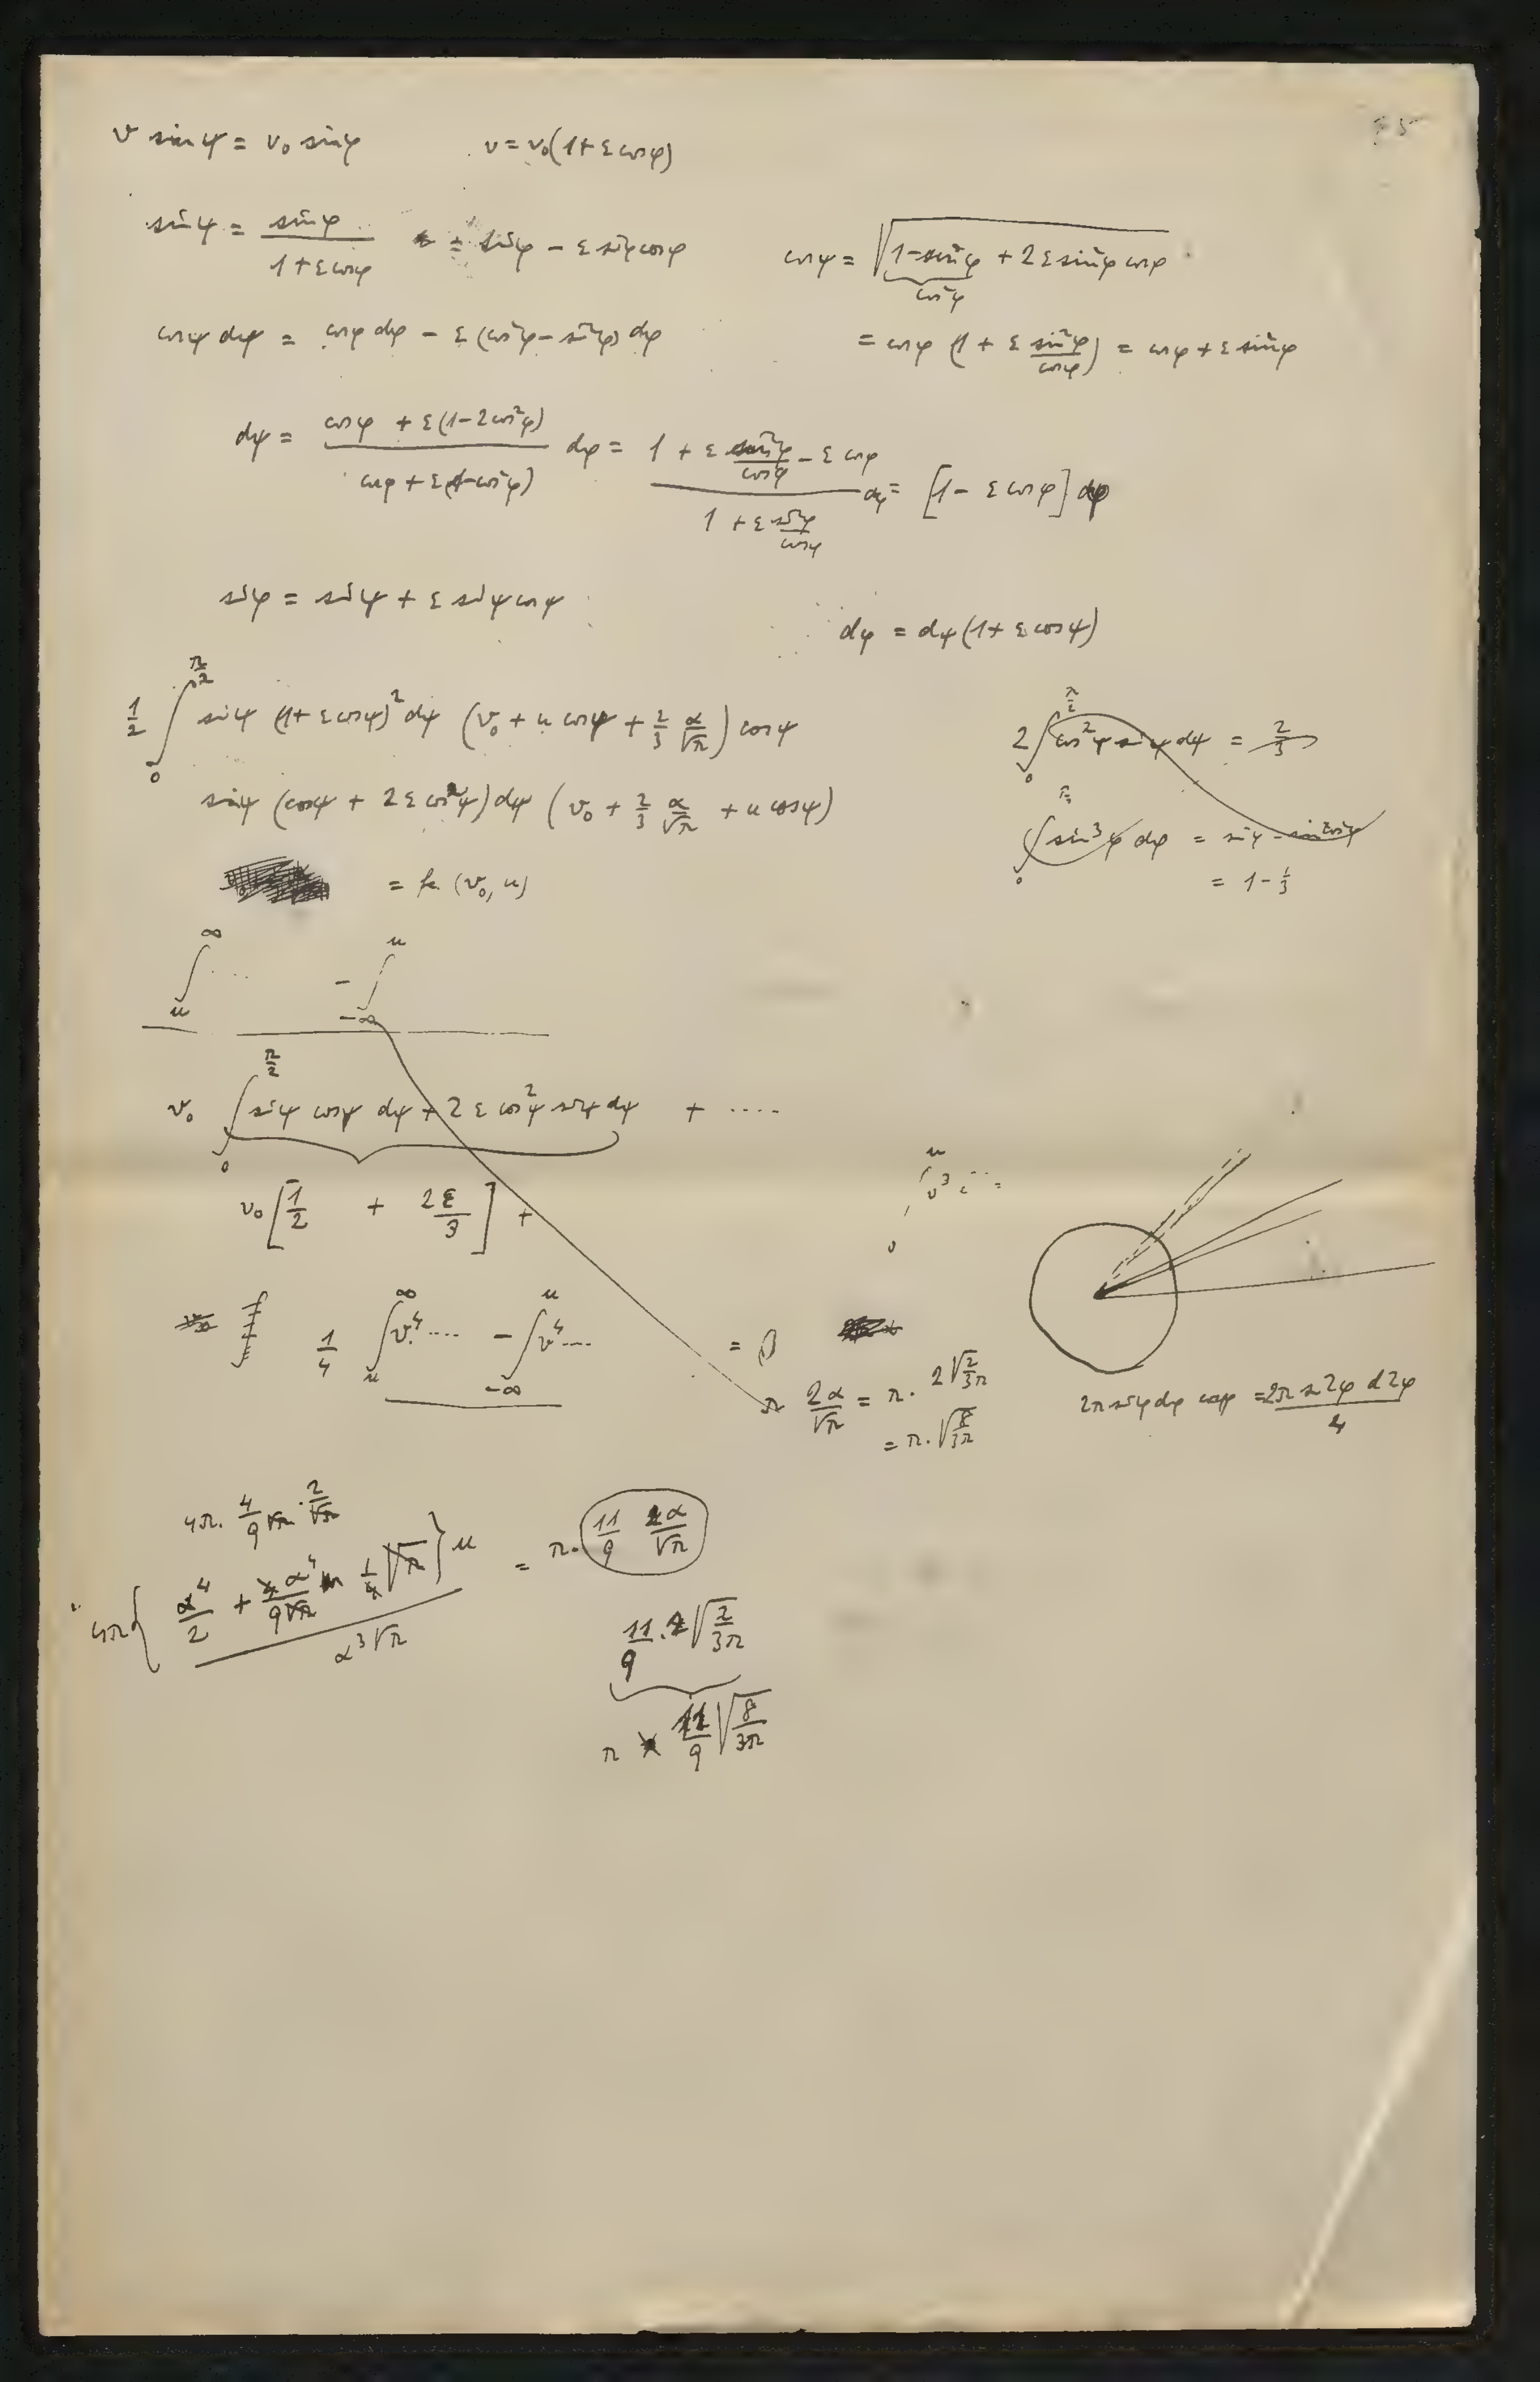 v sin ψ = v₀ sin φ    v = v₀(1 + ε cos φ)
sin ψ = sin φ / (1 + ε cos φ) = sin φ − ε sin φ cos φ    cos ψ = √(1 − sin²φ + 2 ε sin²φ cos φ)
cos²φ
cos ψ dψ = cos φ dφ − ε (cos²φ − sin²φ) dφ    = cos φ (1 + ε sin²φ / cos φ) = cos φ + ε sin²φ
dψ = (cos φ + ε(1 − 2 cos²φ)) / (cos φ + ε(1 − cos²φ)) dφ = (1 + ε sin²φ / cos φ − ε cos φ) / (1 + ε sin²φ / cos φ) dφ = [1 − ε cos φ] dφ
sin φ = sin ψ + ε sin ψ cos ψ    dφ = dψ (1 + ε cos ψ)
1/2 ∫₀^{π/2} sin ψ (1 + ε cos ψ)² dψ (v₀ + u cos ψ + 2/3 α/√π) cos ψ    2 ∫₀^{π/2} cos²ψ sin ψ dψ = 2/3
sin ψ (cos ψ + 2 ε cos²ψ) dψ (v₀ + 2/3 α/√π + u cos ψ)    ∫₀ sin³φ dφ = sin φ − sin φ cos²φ
= 1 − 1/3
= fe. (v₀, u)
∫_u^∞ ....    − ∫_{−∞}^u
v₀ ∫₀^{π/2} sin ψ cos ψ dψ + 2 ε cos²ψ sin ψ dψ + ....
v₀ [1/2 + 2ε/3] +
∫₀^u v³ ... =
1/4 ∫_u^∞ v⁴ .... − ∫_{−∞}^u v⁴ ....    =
π 2α/√π = π · 2√(2/3π)    2π sin φ dφ cos φ = 2π s 2φ d2φ / 4
= π · √(8/3π)
4π · 4/9√π · 2/√π
4π { α⁴/2 + α⁴/9√π √π } u / α³√π    = π · 11/9 2α/√π
11/9 · 2 √(2/3π)
π 11/9 √(8/3π)